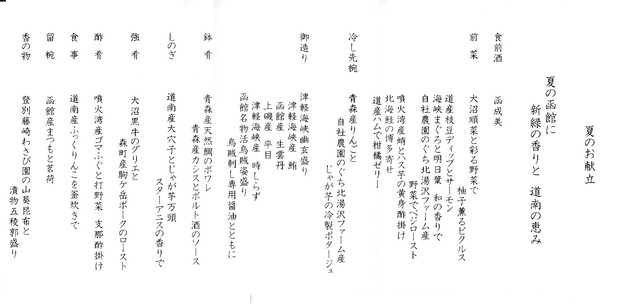 夏のお献立
夏の函館に
新緑の香りと 道南の恵み
食前酒 函成美
前菜 大沼順菜と彩る野菜で
柚子薫るピクルス
道産枝豆ディップとサーモン
海峡まぐろと明日葉 和の香りで
自社農園のぐち北湯沢ファーム産
野菜でベジロースト
噴火湾産蛸とハス芋の黄身酢掛け
北海鮭の博多寄せ
道産ハムで柑橘ゼリー
冷し先椀 青森産りんごと
自社農園のぐち北湯沢ファーム産
じゃが芋の冷製ポタージュ
御造り 津軽海峡幽玄盛り
津軽海峡産 鮪
函館産 生雲丹
上磯産 平目
津軽海峡産 時しらず
函館名物活烏賊姿盛り
烏賊刺し専用醤油とともに
鉢肴 青森産天然鯛のポワレ
青森産カシスとポルト酒のソース
しのぎ 道南産大穴子とじゃが芋万頭
スターアニスの香りで
強肴 大沼黒牛のグリエと
森町産駒ケ岳ポークのロースト
酢肴 噴火湾産ゴマふぐと打野菜 支那酢掛け
食事 道南産ふっくりんこを釜炊きで
留椀 函館産まつもと茗荷
香の物 登別藤崎わさび園の山葵昆布と
漬物五稜郭盛り